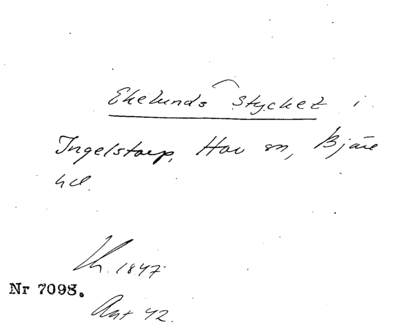 Ekelunds Stycket i
Ingelstorp, Hov sn, Bjäre
hd.
Lh. 1847
Nr 7098.
Ant 42.